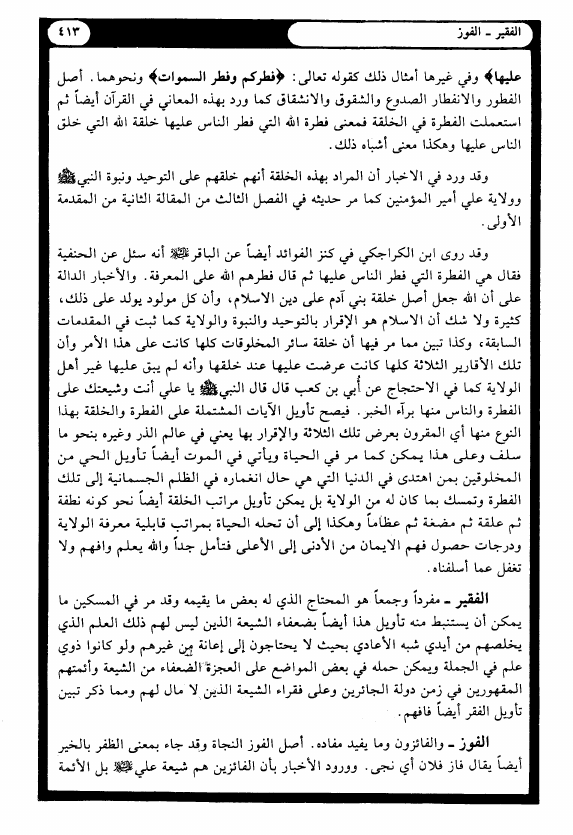 الفقير ـ الفوز
٤١٣
عليها﴾ وفي غيرها أمثال ذلك كقوله تعالى: ﴿فطركم وفطر السموات﴾ ونحوهما. أصل
الفطور والانفطار الصدوع والشقوق والانشقاق كما ورد بهذه المعاني في القرآن أيضاً ثم
استعملت الفطرة في الخلقة فمعنى فطرة الله التي فطر الناس عليها خلقة الله التي خلق
الناس عليها وهكذا معنى أشباه ذلك.
وقد ورد في الاخبار أن المراد بهذه الخلقة أنهم خلقهم على التوحيد ونبوة النبي ﷺ
وولاية علي أمير المؤمنين كما مر حديثه في الفصل الثالث من المقالة الثانية من المقدمة
الأولى.
وقد روى ابن الكراجكي في كنز الفوائد أيضاً عن الباقر أنه سئل عن الحنفية
فقال هي الفطرة التي فطر الناس عليها ثم قال فطرهم الله على المعرفة. والأخبار الدالة
على أن الله جعل أصل خلقة بني آدم على دين الاسلام، وأن كل مولود يولد على ذلك،
كثيرة ولا شك أن الاسلام هو الإقرار بالتوحيد والنبوة والولاية كما ثبت في المقدمات
السابقة، وكذا تبين مما مر فيها أن خلقة سائر المخلوقات كلها كانت على هذا الأمر وأن
تلك الأقارير الثلاثة كلها كانت عرضت عليها عند خلقها وأنه لم يبق عليها غير أهل
الولاية كما في الاحتجاج عن أُبي بن كعب قال قال النبي ﷺ يا علي أنت وشيعتك على
الفطرة والناس منها برآء الخبر. فيصح تأويل الآيات المشتملة على الفطرة والخلقة بهذا
النوع منها أي المقرون بعرض تلك الثلاثة والإقرار بها يعني في عالم الذر وغيره بنحو ما
سلف وعلى هذا يمكن كما مر في الحياة ويأتي في الموت أيضاً تأويل الحي من
المخلوقين بمن اهتدى في الدنيا التي هي حال انغماره في الظلم الجسمانية إلى تلك
الفطرة وتمسك بما كان له من الولاية بل يمكن تأويل مراتب الخلقة أيضاً نحو كونه نطفة
ثم علقة ثم مضغة ثم عظاماً وهكذا إلى أن تحله الحياة بمراتب قابلية معرفة الولاية
ودرجات حصول فهم الايمان من الأدنى إلى الأعلى فتأمل جداً والله يعلم وافهم ولا
تغفل عما أسلفناه.
الفقير ـ مفرداً وجمعاً هو المحتاج الذي له بعض ما يقيمه وقد مر في المسكين ما
يمكن أن يستنبط منه تأويل هذا أيضاً بضعفاء الشيعة الذين ليس لهم ذلك العلم الذي
يخلصهم من أيدي شبه الأعادي بحيث لا يحتاجون إلى إعانة من غيرهم ولو كانوا ذوي
علم في الجملة ويمكن حمله في بعض المواضع على العجزة الضعفاء من الشيعة وأئمتهم
المقهورين في زمن دولة الجائرين وعلى فقراء الشيعة الذين لا مال لهم ومما ذكر تبين
تأويل الفقر أيضاً فافهم.
الفوز ـ والفائزون وما يفيد مفاده. أصل الفوز النجاة وقد جاء بمعنى الظفر بالخير
أيضاً يقال فاز فلان أي نجى. وورود الأخبار بأن الفائزين هم شيعة علي بل الأئمة